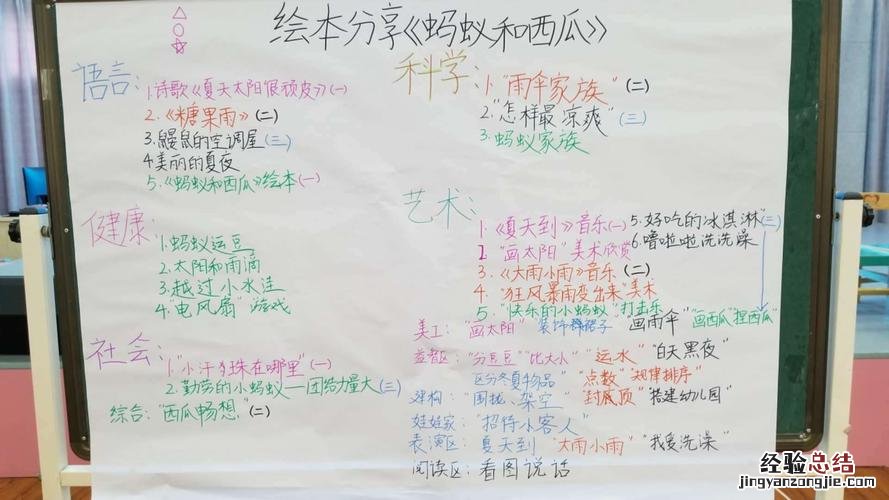 绘本分享《蚂蚁和西瓜》
语言:
1.诗歌《夏天太阳很顽皮》(一)
2.《糖果雨》(二)
3.鼹鼠的空调屋(三)
4.美丽的夏夜
5.《蚂蚁和西瓜》绘本(一)
健康:
1.蚂蚁运豆
2.太阳和雨滴
3.越过小水洼
4."电风扇"游戏
社会:
1."小汗珠在哪里"(一)
2.勤劳的小蚂蚁—团结力量大(三)
综合:"西瓜畅想"(二)
科学:
1."雨伞家族"(二)
2."怎样最凉爽"(三)
3.蚂蚁家族
艺术:
1.《夏天到》音乐(一)
2."画太阳"美术欣赏
3.《大雨小雨》音乐(二)
4."狂风暴雨变出来"美术
5."快乐的小蚂蚁"打击乐
5.好吃的冰淇淋(三)
6.噜啦啦洗洗澡
美工:"画太阳" 装饰裙子 画雨伞 "画西瓜""捏西瓜"
益智区:"分豆豆""比大小" "运水" "白天黑夜"
区分冬夏物品" "点数""规律排序"
建构:"围拢、架空" "封底顶""搭建幼儿园"
娃娃家:"招待小客人"
表演区:夏天到 "大雨小雨" "我爱洗澡"
阅读区:看图说话
经验总结
jingyanzongjie.com